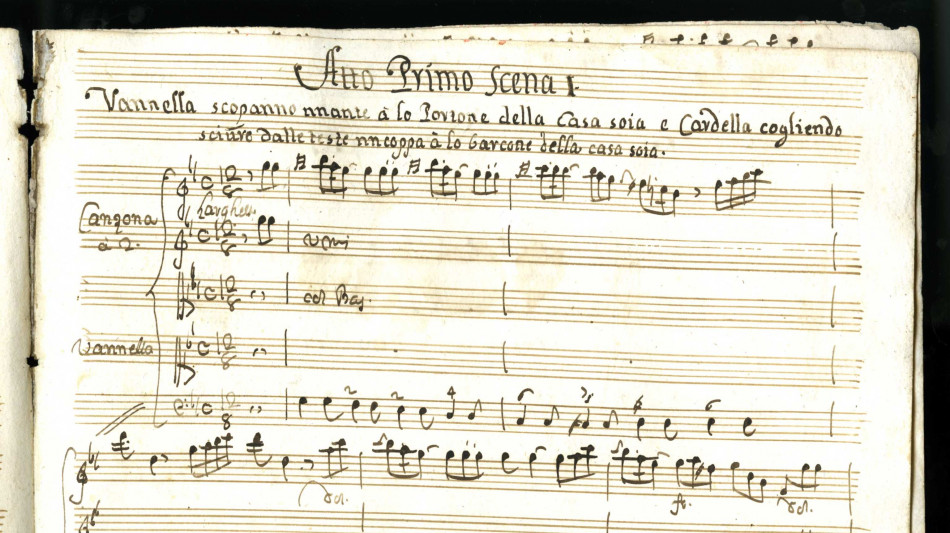 Atto Primo Scena I.
Vannella scopanno nnante à lo Portone della Casa soia e Cardella cogliendo
sciure dalle teste nncoppa à lo barcone della casa soia.
Larghett.
Canzona
à 2.
uni
col Bas.
Vannella
dol.
fo.
dol.